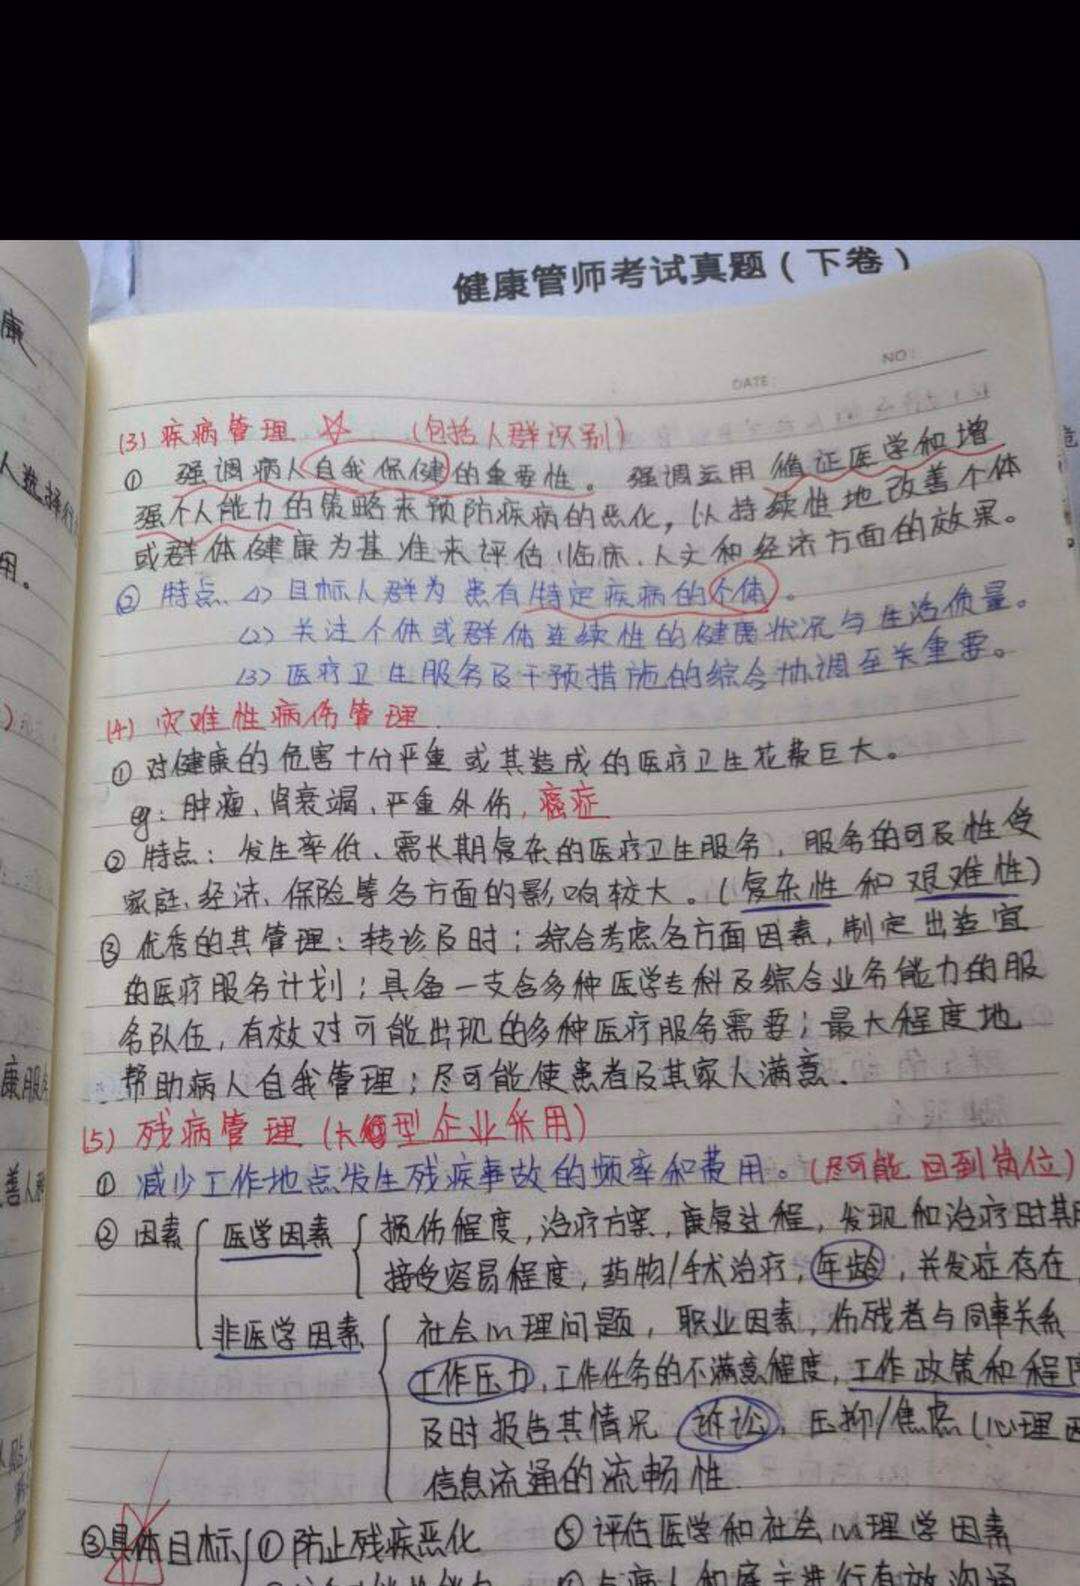 健康管师考试真题（下卷）
NO:
DATE:
(3) 疾病管理 ☆ (包括人群识别)
① 强调病人自我保健的重要性。强调运用循证医学和增
强个人能力的策略来预防疾病的恶化，以持续性地改善个体
或群体健康为基准来评估临床、人文和经济方面的效果。
② 特点 <1> 目标人群为患有特定疾病的个体。
<2> 关注个体或群体连续性的健康状况与生活质量。
<3> 医疗卫生服务及干预措施的综合协调至关重要。
(4) 灾难性病伤管理
① 对健康的危害十分严重或其造成的医疗卫生花费巨大。
eg: 肿瘤、肾衰竭、严重外伤，癌症
② 特点：发生率低、需长期复杂的医疗卫生服务，服务的可及性受
家庭、经济、保险等各方面的影响较大。(复杂性和艰难性)
③ 优秀的其管理：转诊及时；综合考虑各方面因素，制定出适宜
的医疗服务计划；具备一支含多种医学专科及综合业务能力的服
务队伍，有效对可能出现的多种医疗服务需要；最大程度地
帮助病人自我管理；尽可能使患者及其家人满意.
(5) 残病管理 (大型企业采用)
① 减少工作地点发生残疾事故的频率和费用。(尽可能回到岗位)
② 因素 医学因素 损伤程度，治疗方案，康复过程，发现和治疗时其
接受容易程度，药物/手术治疗，年龄，并发症存在
非医学因素 社会心理问题，职业因素，伤残者与同事关系
工作压力，工作任务的不满意程度，工作政策和程
及时报告其情况 诉讼，压抑/焦虑 (心理
信息流通的流畅性
③具体目标 ①防止残疾恶化 ⑤评估医学和社会心理学因素
与病人和雇主进行有效沟通
康
人选择
用。
康服
善人